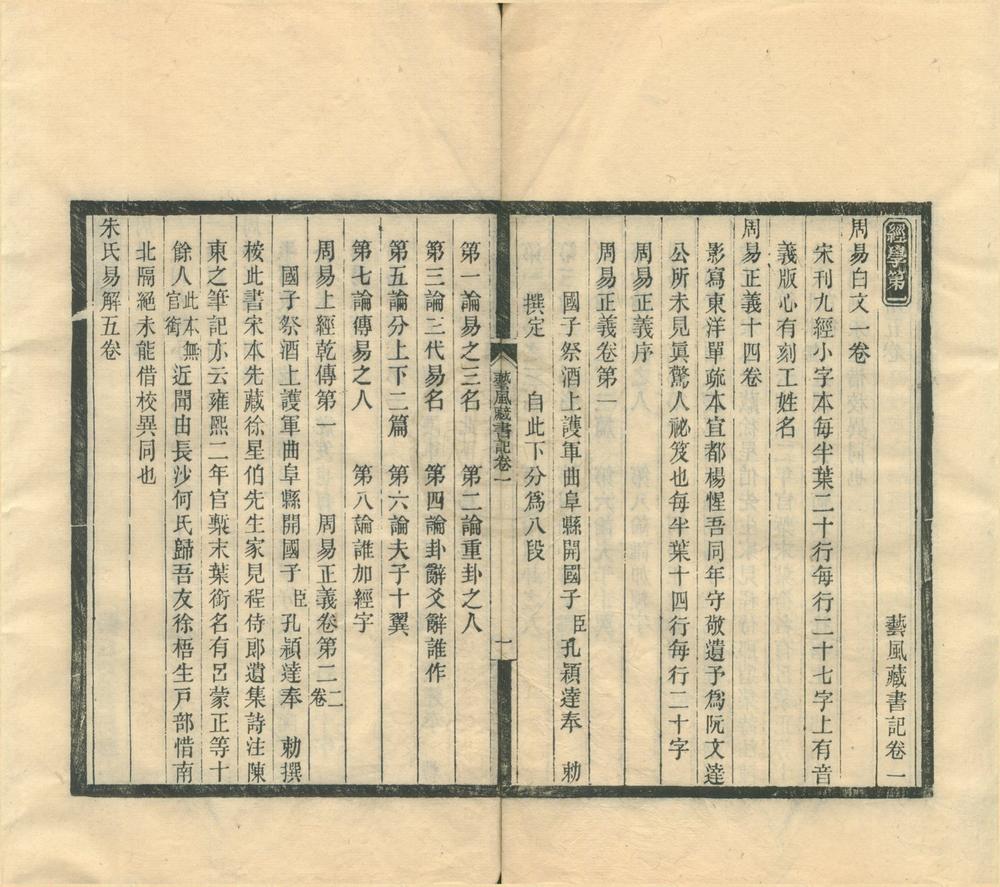 經學第一 藝風藏書記卷一
周易白文一卷
宋刊九經小字本每半葉二十行每行二十七字上有音
義版心有刻工姓名
周易正義十四卷
影寫東洋單疏本宜都楊惺吾同年守敬遺予爲阮文達
公所未見眞驚人祕笈也每半葉十四行每行二十字
周易正義序
周易正義卷第一
國子祭酒上護軍曲阜縣開國子臣孔穎達奉 勅
撰定 自此下分爲八段
藝風藏書記卷一 一
第一論易之三名 第二論重卦之人
第三論三代易名 第四論卦辭爻辭誰作
第五論分上下二篇 第六論夫子十翼
第七論傳易之人 第八論誰加經字
周易上經乾傳第一 周易正義卷第二二卷
國子祭酒上護軍曲阜縣開國子臣孔穎達奉 勅撰
桉此書宋本先藏徐星伯先生家見程侍郎遺集詩注陳
東之筆記亦云雍熙二年官槧末葉銜名有呂蒙正等十
餘人此本無官銜近聞由長沙何氏歸吾友徐梧生戸部惜南
北隔絕未能借校異同也
朱氏易解五卷